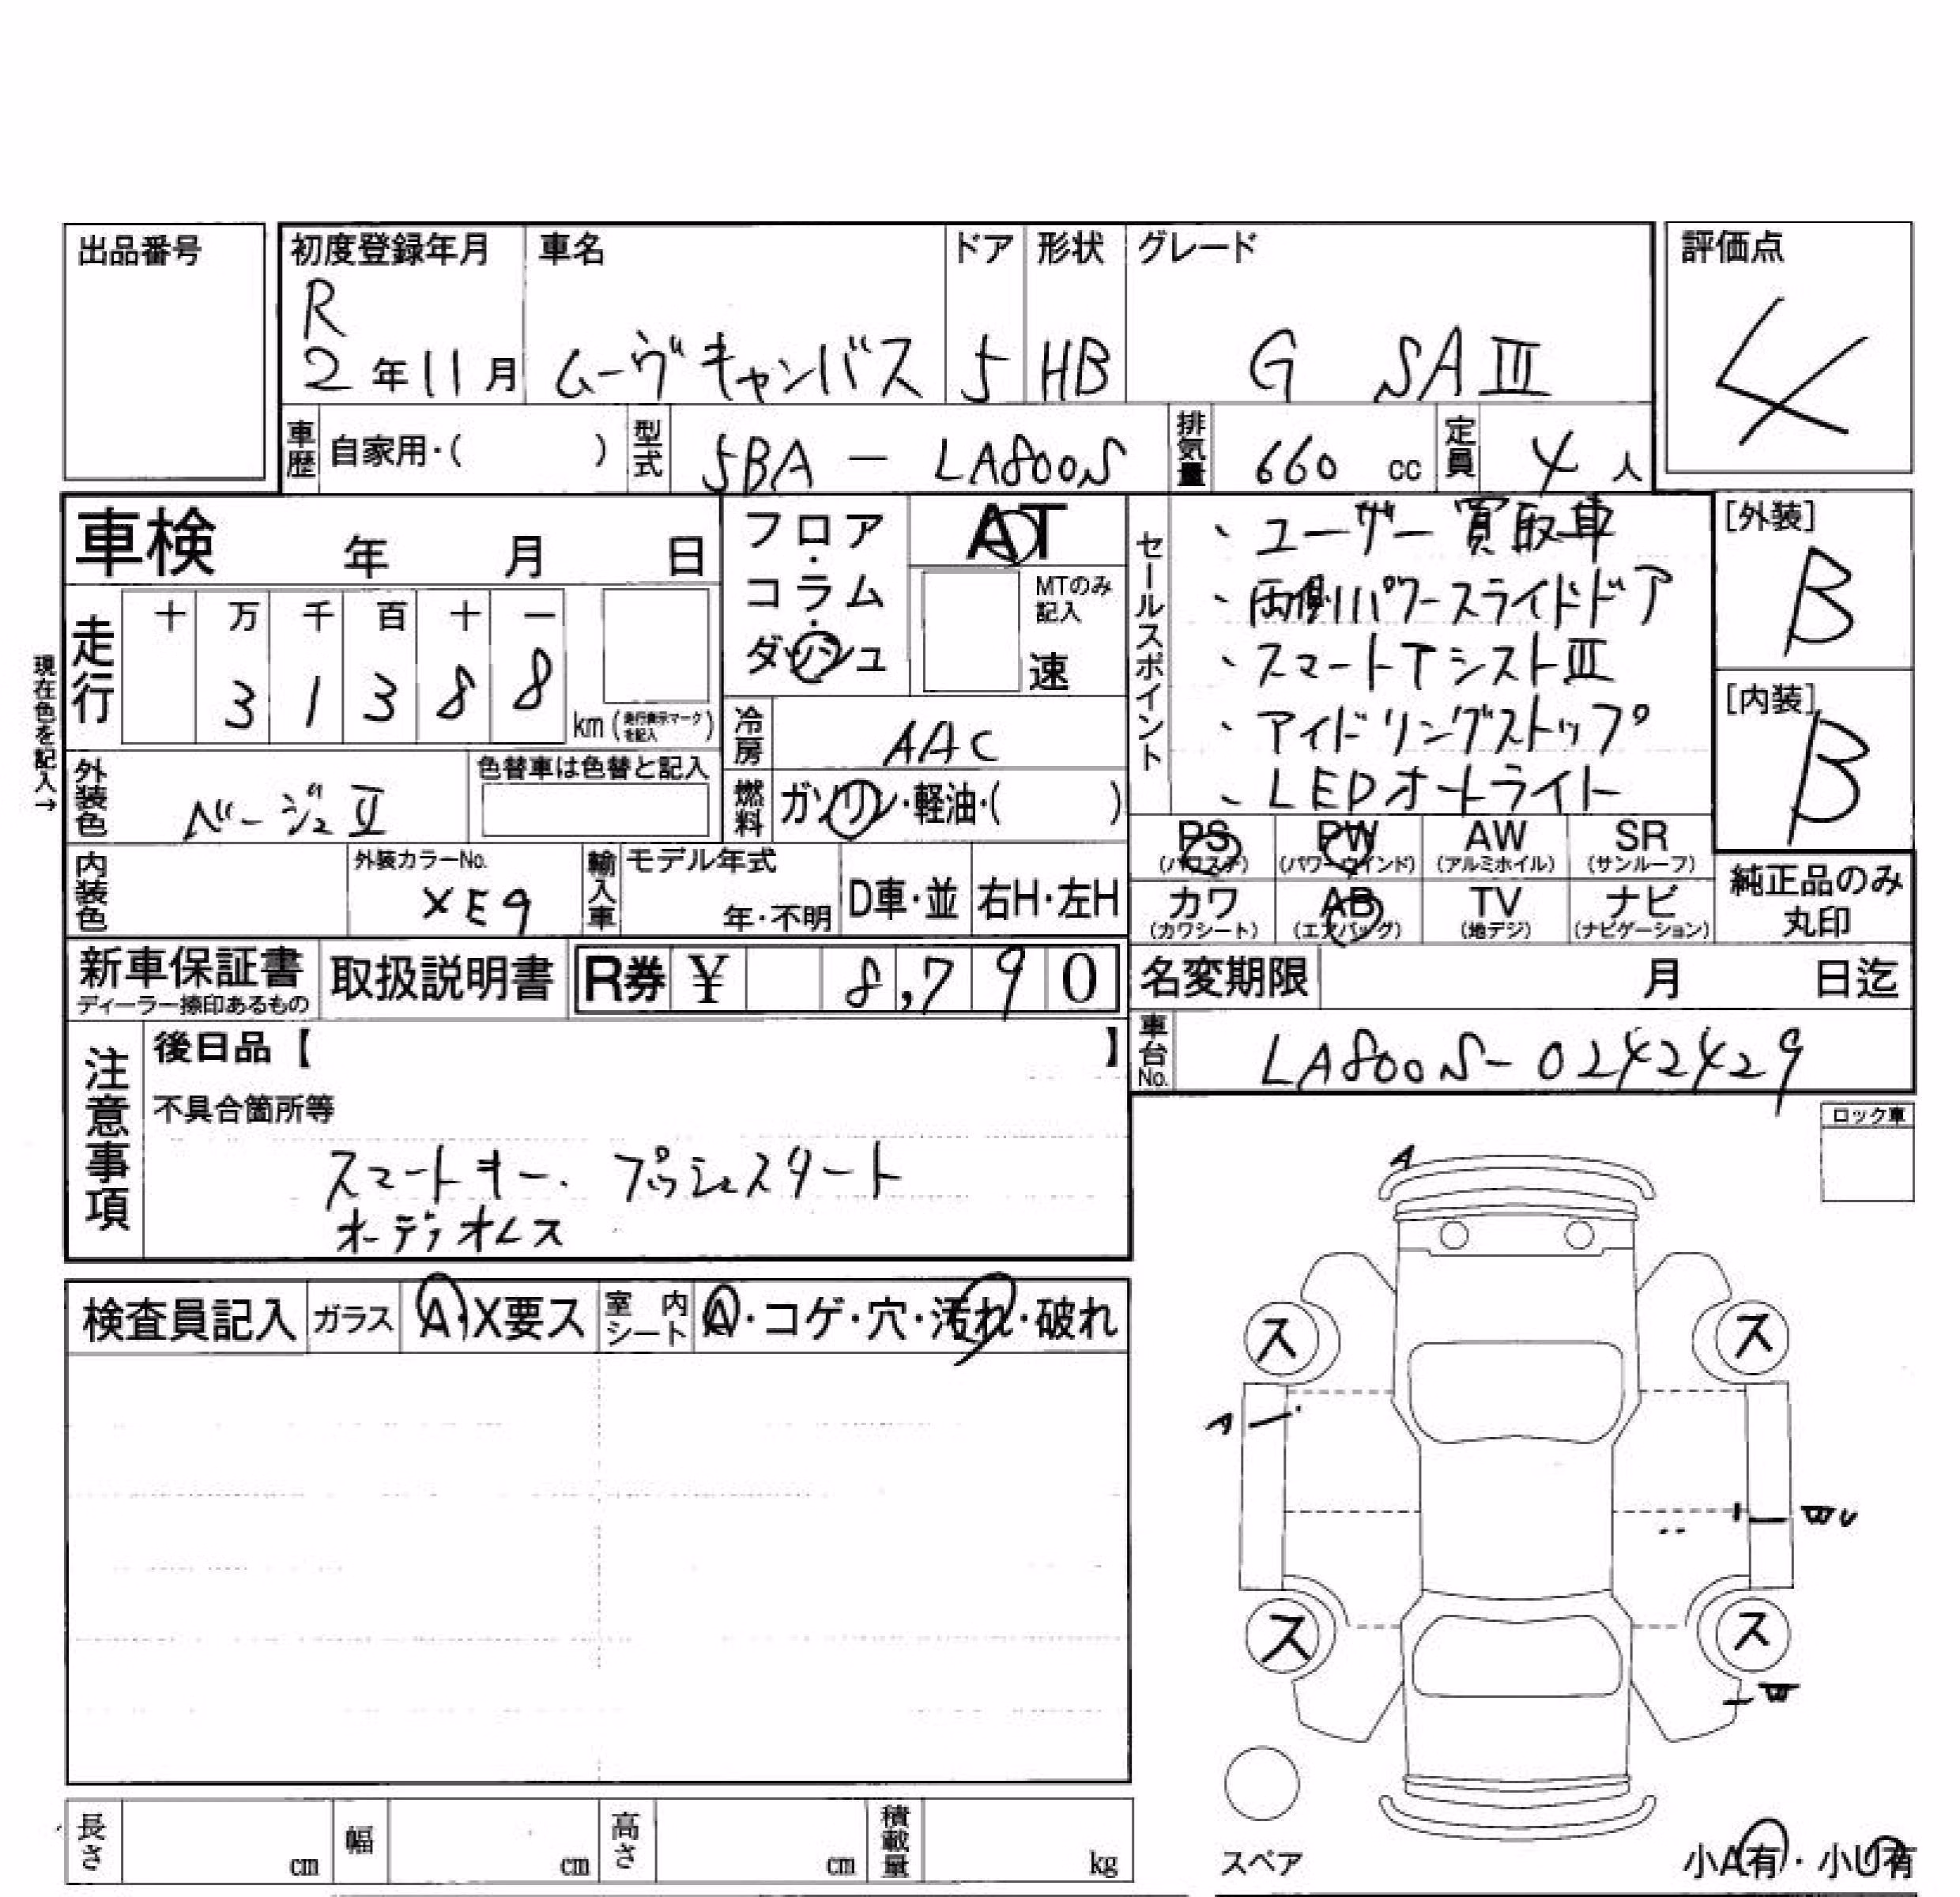 出品番号
初度登録年月 車名 ドア 形状 グレード 評価点
R
2年11月 ムーヴキャンバス 5 HB G SAⅢ 4
車歴 自家用・( ) 型式 5BA - LA800S 排気量 660 cc 定員 4人
車検 年 月 日
フロア・コラム・ダッシュ
AT
MTのみ記入
速
セールスポイント
、ユーザー買取車
、両側パワースライドドア
、スマートアシストⅢ
、アイドリングストップ
、LEDオートライト
[外装]
B
[内装]
B
現在色を記入→
走行 十 万 千 百 十 一
3 1 3 8 8
km (走行表示マークを記入)
冷房 AAC
外装色 ベージュⅡ 色替車は色替と記入
燃料 ガソリン・軽油・( )
PS PW AW SR
(パワステ) (パワーウインド) (アルミホイル) (サンルーフ)
カワ AB TV ナビ
(カワシート) (エアバッグ) (地デジ) (ナビゲーション)
純正品のみ
丸印
内装色 外装カラーNo. XE9 輸入車 モデル年式 年・不明 D車・並 右H・左H
新車保証書 取扱説明書 R券 ¥ 8,790
ディーラー捺印あるもの
名変期限 月 日迄
車台No. LA800S-0242429
注意事項
後日品【 】
不具合箇所等
スマートキー、プッシュスタート
オーディオレス
ロック車
A
検査員記入 ガラス A・X要ス 室内シート A・コゲ・穴・汚れ・破れ
ス ス
A
ス ス
W
スペア
小A有・小U有
長さ cm 幅 cm 高さ cm 積載量 kg